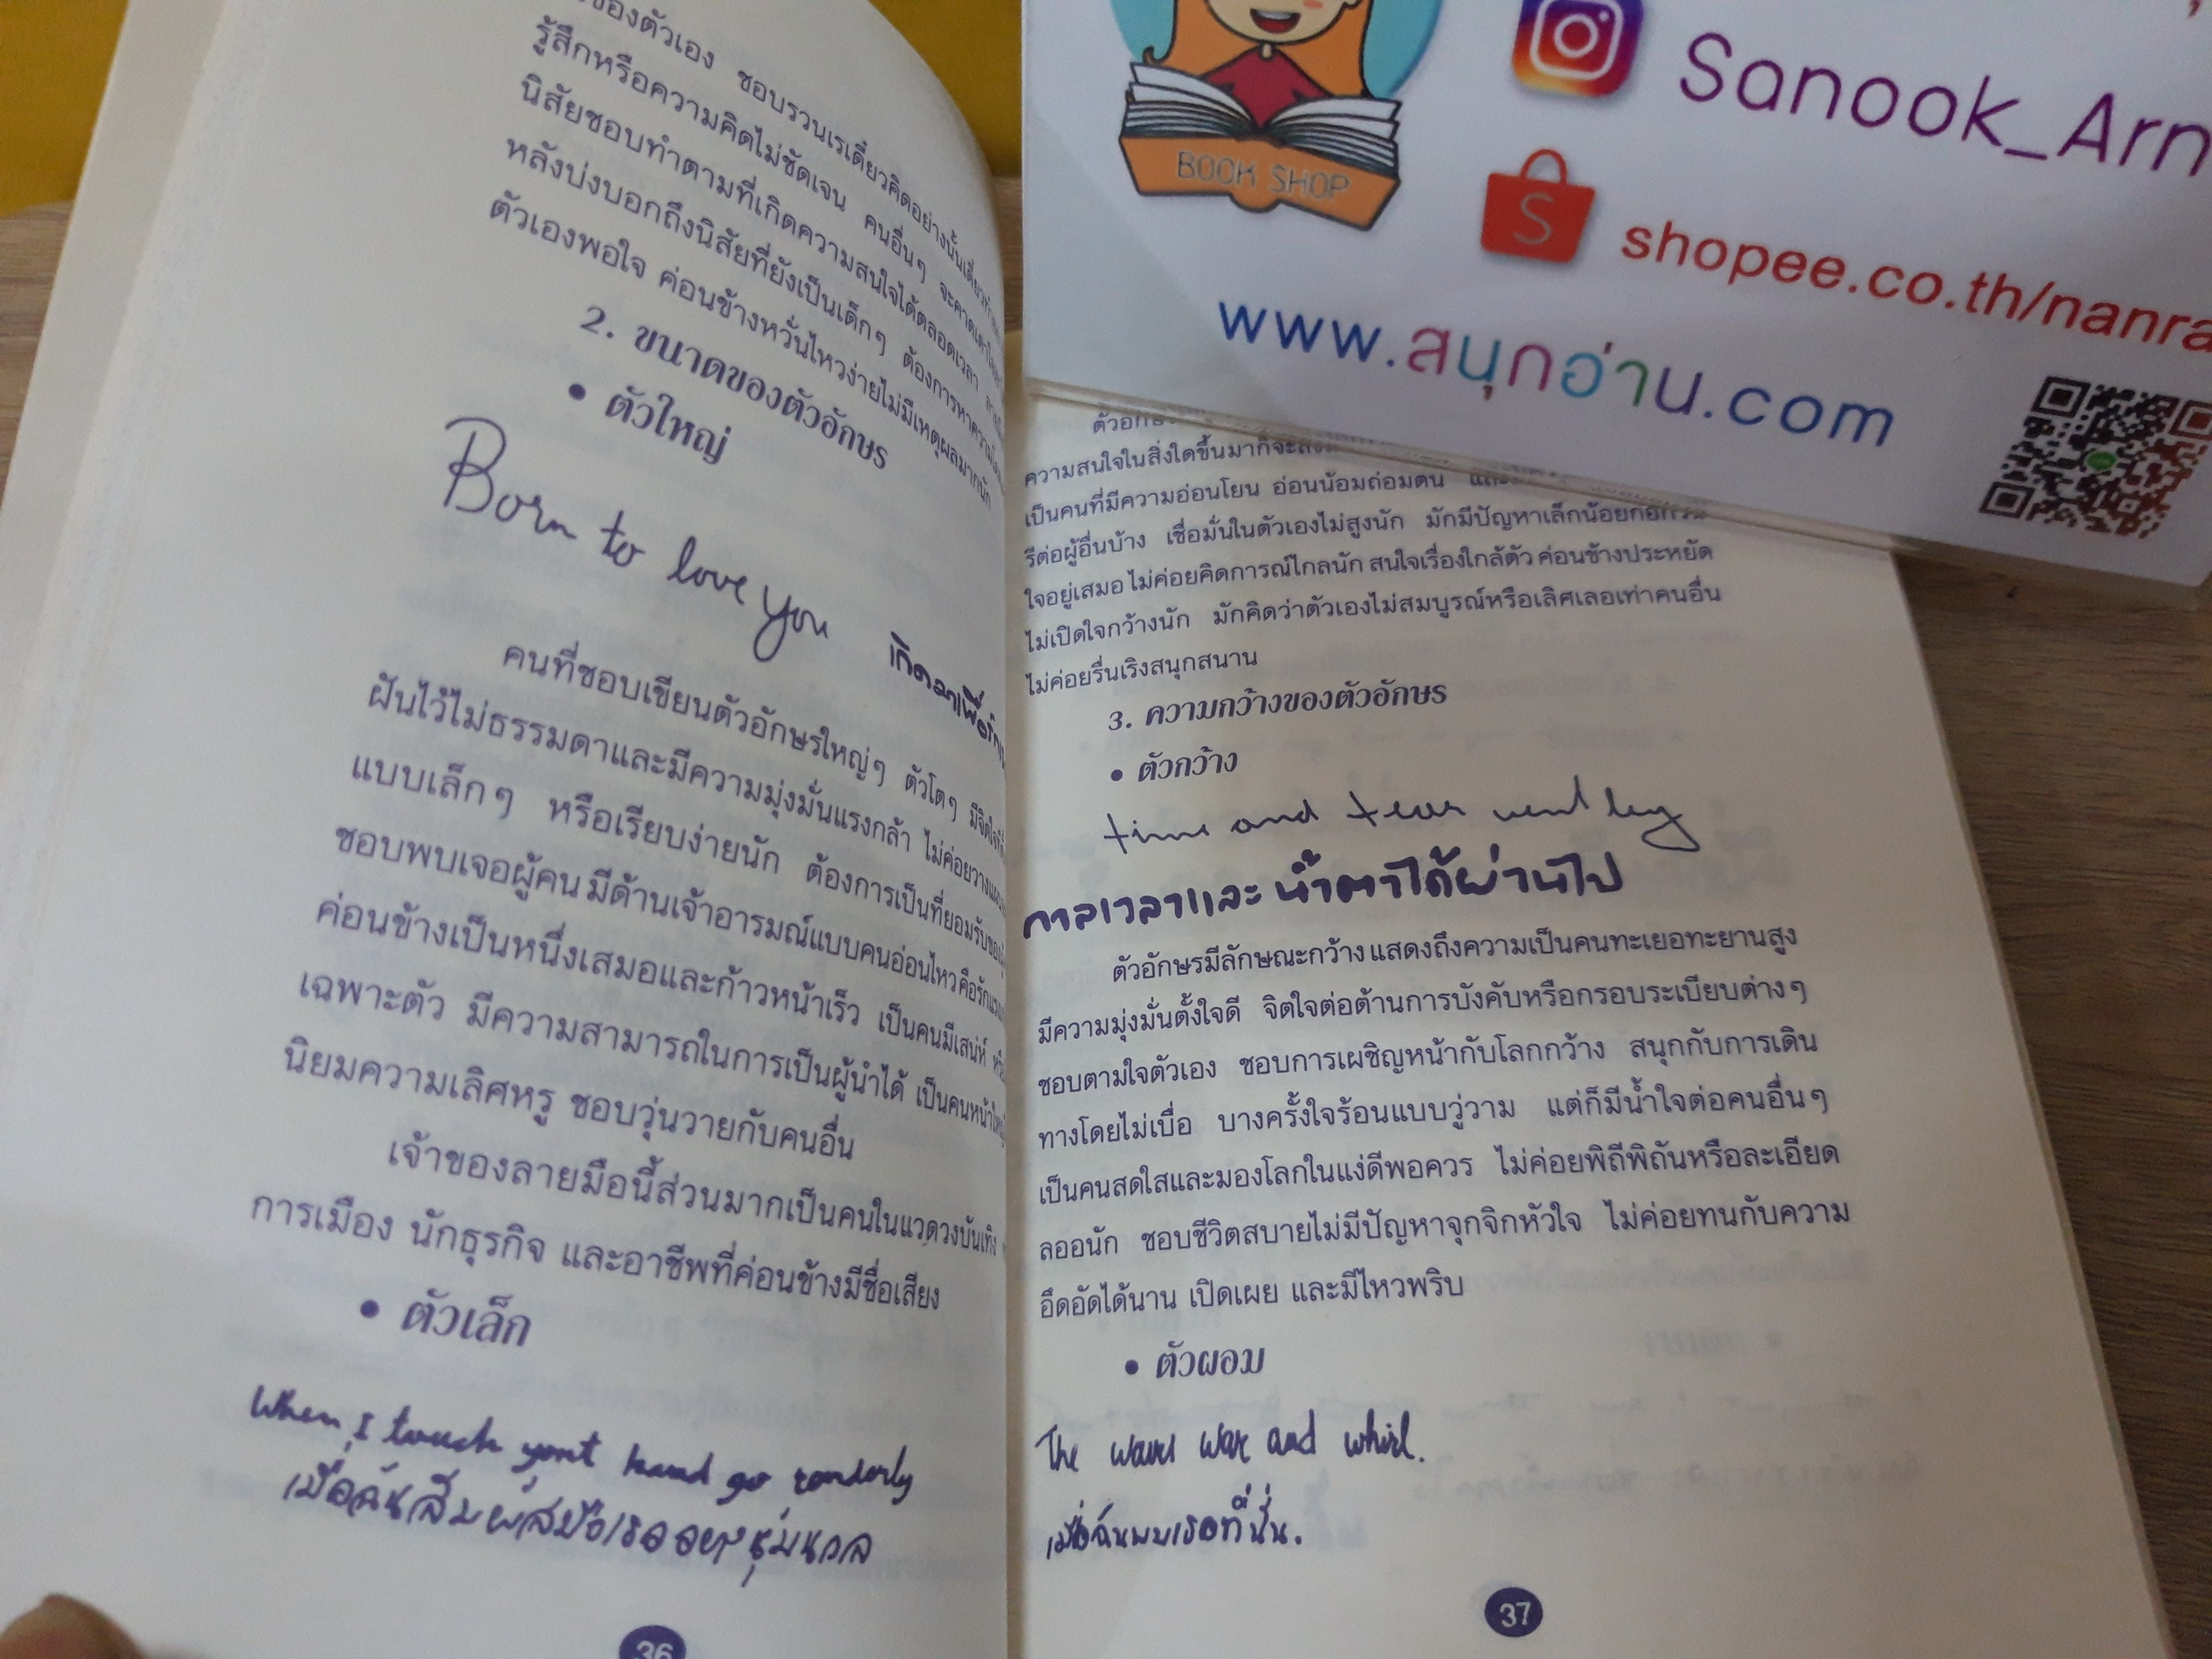 ของตัวเอง ชอบรวนเรเดี๋ยวคิดอย่างนั้นเดี๋ยว
รู้สึกหรือความคิดไม่ชัดเจน คนอื่นๆ จะคาดเดา
นิสัยชอบทำตามที่เกิดความสนใจได้ตลอดเวลา
หลังบ่งบอกถึงนิสัยที่ยังเป็นเด็กๆ ต้องการหาความ
ตัวเองพอใจ ค่อนข้างหวั่นไหวง่ายไม่มีเหตุผลมากนัก
2. ขนาดของตัวอักษร
• ตัวใหญ่
Born to love you เกิดมาเพื่อรัก
คนที่ชอบเขียนตัวอักษรใหญ่ๆ ตัวโตๆ มีจิตใจ
ฝันไว้ไม่ธรรมดาและมีความมุ่งมั่นแรงกล้า ไม่ค่อยวางแผน
แบบเล็กๆ หรือเรียบง่ายนัก ต้องการเป็นที่ยอมรับของ
ชอบพบเจอผู้คน มีด้านเจ้าอารมณ์แบบคนอ่อนไหว คือรักแรง
ค่อนข้างเป็นหนึ่งเสมอและก้าวหน้าเร็ว เป็นคนมีเสน่ห์
เฉพาะตัว มีความสามารถในการเป็นผู้นำได้ เป็นคนหน้าใหญ่
นิยมความเลิศหรู ชอบวุ่นวายกับคนอื่น
เจ้าของลายมือนี้ส่วนมากเป็นคนในแวดวงบันเทิง
การเมือง นักธุรกิจ และอาชีพที่ค่อนข้างมีชื่อเสียง
• ตัวเล็ก
When I touch your hand so tenderly
เมื่อฉันสัมผัสมือเธออย่างนุ่มนวล
36
BOOK SHOP
Sanook_Arn
S
shopee.co.th/nanra
www.สนุกอ่าน.com
ตัวอักษร
ความสนใจในสิ่งใดขึ้นมาก็จะ
เป็นคนที่มีความอ่อนโยน อ่อนน้อมถ่อมตน
รีต่อผู้อื่นบ้าง เชื่อมั่นในตัวเองไม่สูงนัก มักมีปัญหาเล็กน้อย
ใจอยู่เสมอ ไม่ค่อยคิดการณ์ไกลนัก สนใจเรื่องใกล้ตัว ค่อนข้างประหยัด
ไม่เปิดใจกว้างนัก มักคิดว่าตัวเองไม่สมบูรณ์หรือเลิศเลอเท่าคนอื่น
ไม่ค่อยรื่นเริงสนุกสนาน
3. ความกว้างของตัวอักษร
• ตัวกว้าง
time and tear went by
กาลเวลาและน้ำตาได้ผ่านไป
ตัวอักษรมีลักษณะกว้าง แสดงถึงความเป็นคนทะเยอทะยานสูง
มีความมุ่งมั่นตั้งใจดี จิตใจต่อต้านการบังคับหรือกรอบระเบียบต่างๆ
ชอบตามใจตัวเอง ชอบการเผชิญหน้ากับโลกกว้าง สนุกกับการเดิน
ทางโดยไม่เบื่อ บางครั้งใจร้อนแบบวู่วาม แต่ก็มีน้ำใจต่อคนอื่นๆ
เป็นคนสดใสและมองโลกในแง่ดีพอควร ไม่ค่อยพิถีพิถันหรือละเอียด
ลออนัก ชอบชีวิตสบายไม่มีปัญหาจุกจิกหัวใจ ไม่ค่อยทนกับความ
อึดอัดได้นาน เปิดเผย และมีไหวพริบ
• ตัวผอม
The and whirl.
เมื่อฉันพบเธอที่นั่น.
37